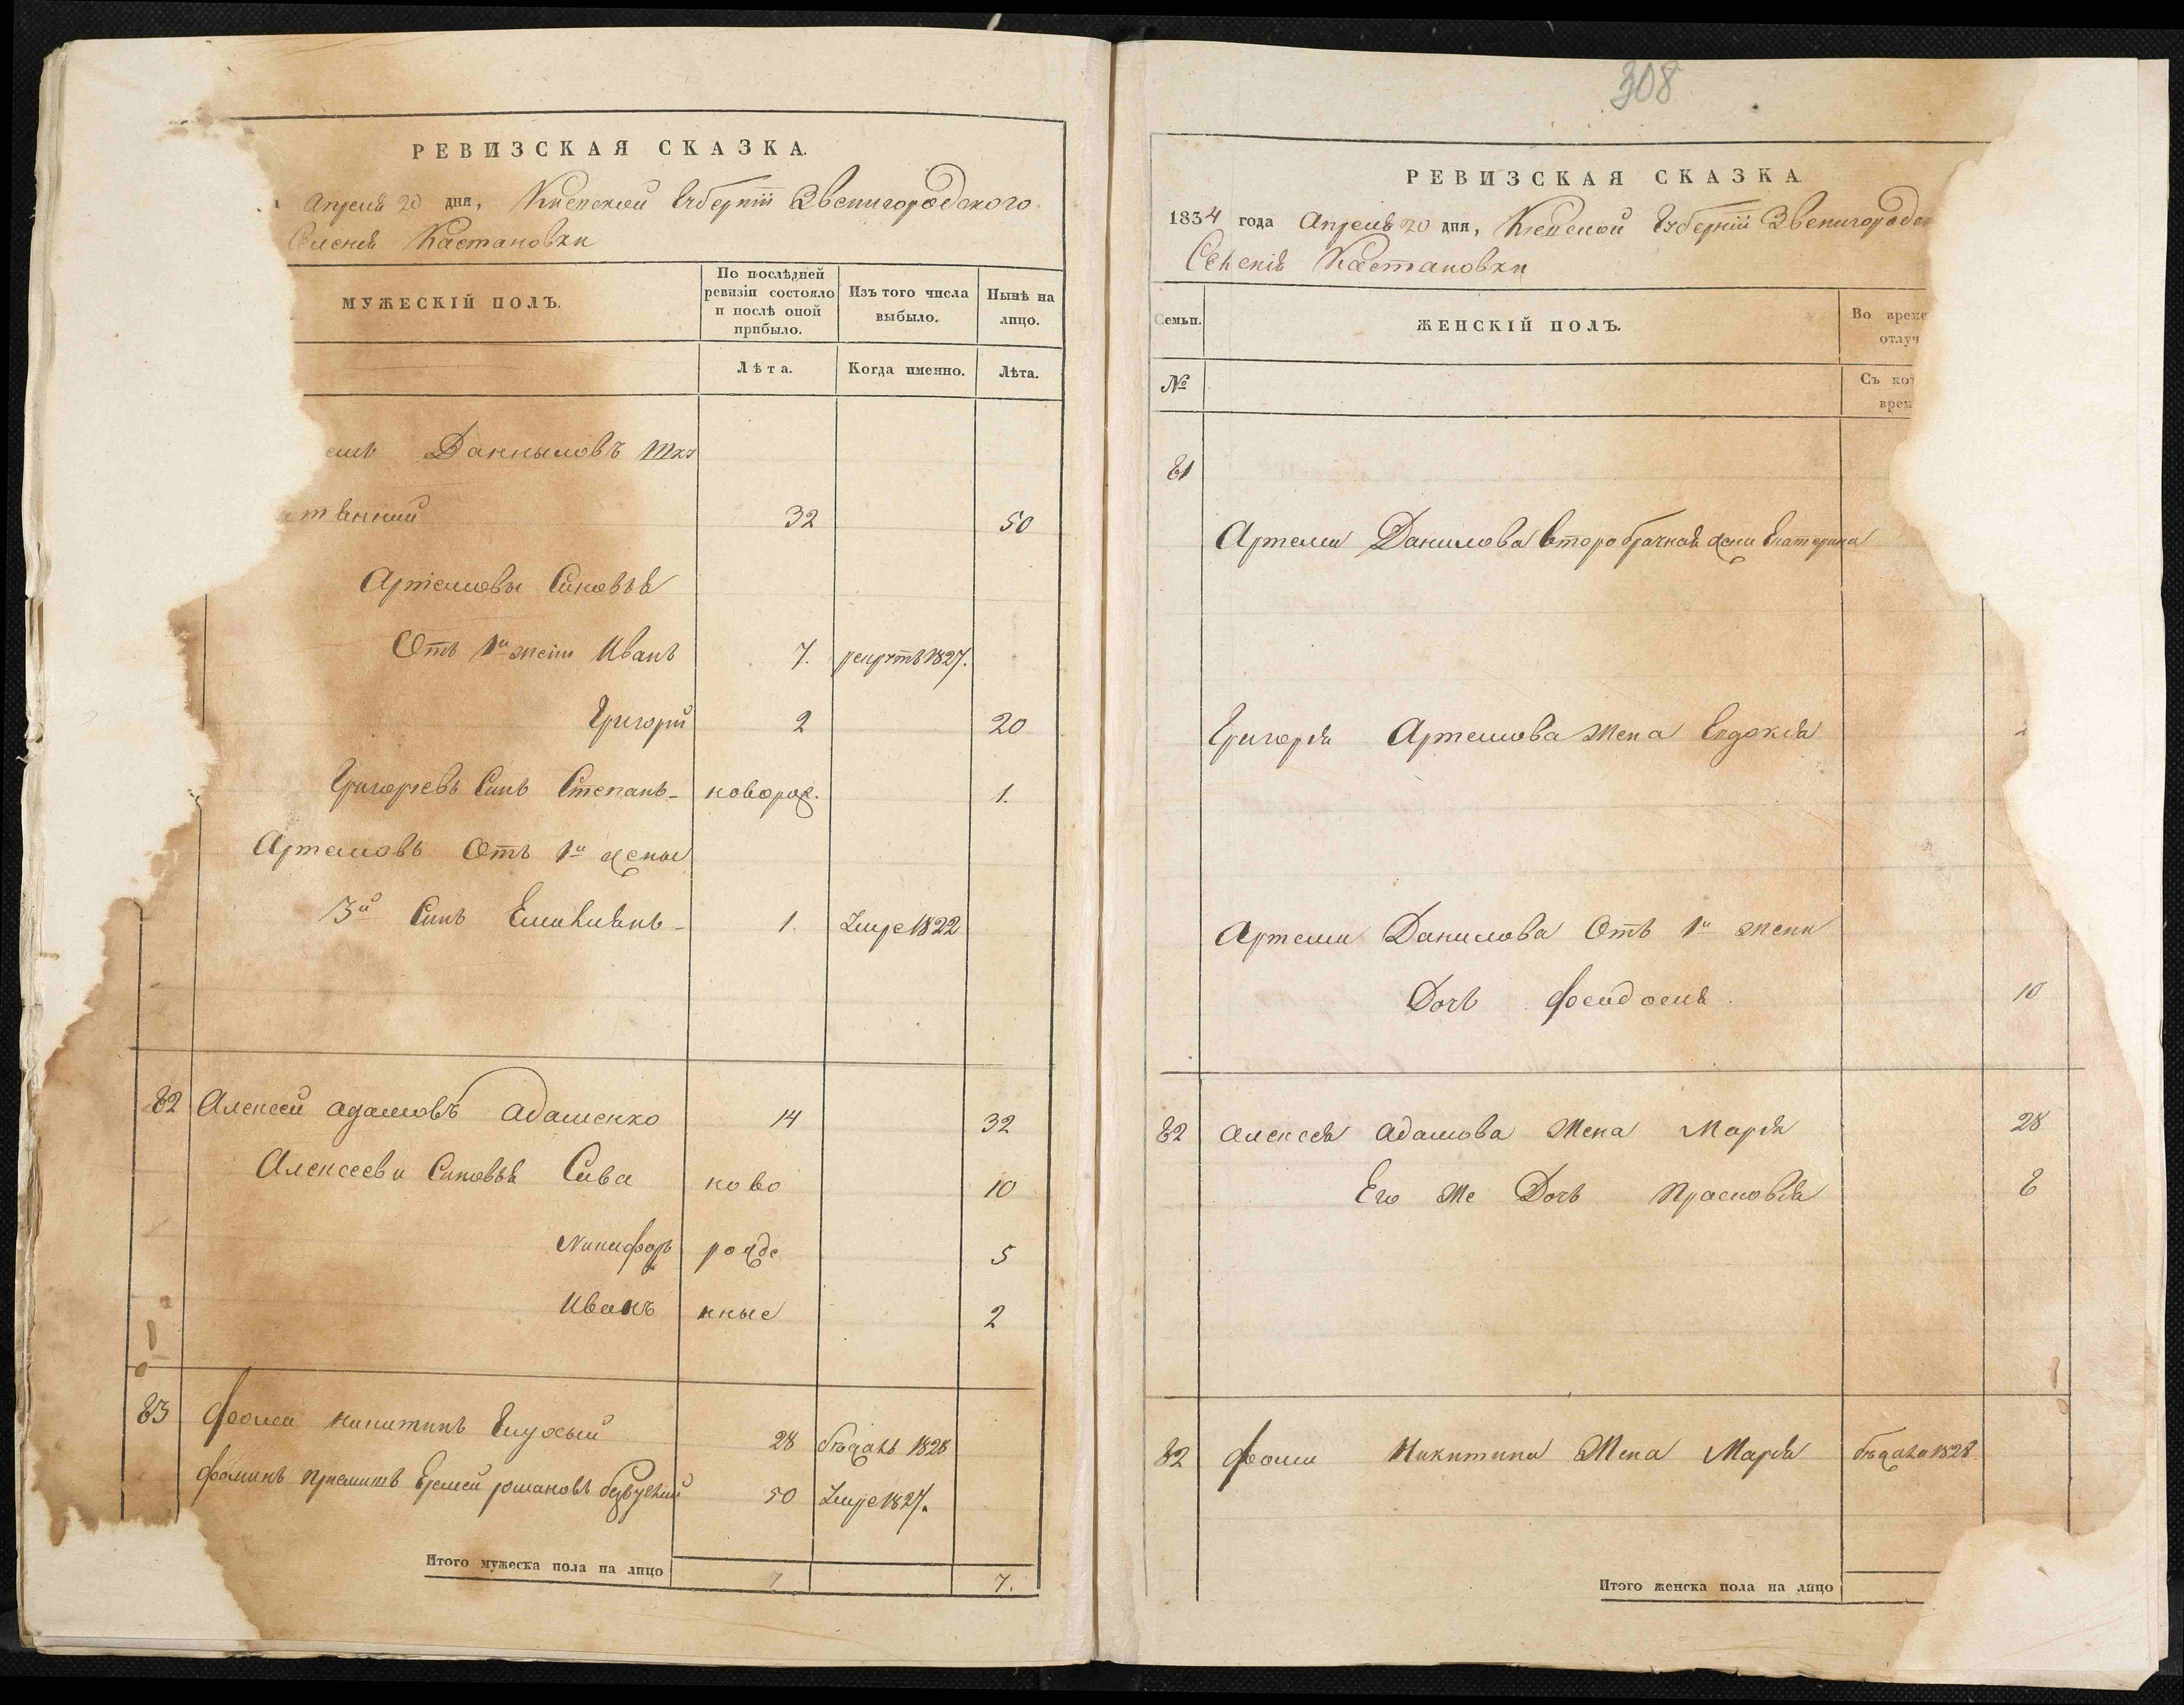 308
РЕВИЗСКАЯ СКАЗКА.
Апреля 20 дня, Киевской Губерніи Звенигородского
Селенія Кастановки
МУЖЕСКІЙ ПОЛЪ.
По послѣдней ревизіи состояло и послѣ оной прибыло.
Изъ того числа выбыло.
Нынѣ на лицо.
Лѣта.
Когда именно.
Лѣта.
Данныловъ
32
50
Артемовы Синовья
Отъ 1й жени Иванъ 7. рекрутъ 1827.
Григорій 2 20
Григориевъ Синъ Степанъ новорож. 1.
Артемовъ Отъ 1й жены
3й Синъ Емилианъ 1. Умре 1822
82 Алексей Адамовъ Адаменко 14 32
Алексееви Синовья Сава ново 10
Никифоръ рожде 5
Иванъ нные 2
83 Фома Никитинъ Глухый 28 бѣжалъ 1828
Фоминъ Еремей романовъ 50 Умре 1827.
Итого мужеска пола на лицо 7 7.
РЕВИЗСКАЯ СКАЗКА
1834 года Апреля 20 дня, Киевской Губерніи Звенигородс
Селенія Кастановки
Семьи.
ЖЕНСКІЙ ПОЛЪ.
Во време
отлуч
№
Съ кот
врем
81
Артема Данилова второбрачная жена Екатерина
Григория Артемова жена Евдокия
Артема Данилова Отъ 1й жени
Дочь Феодосия. 10
82 Алексея Адамова Жена Мария 28
Его же Дочь Прасковия 8
82 Фоми Никитина Жена Мария бѣжала 1828.
Итого женска пола на лицо